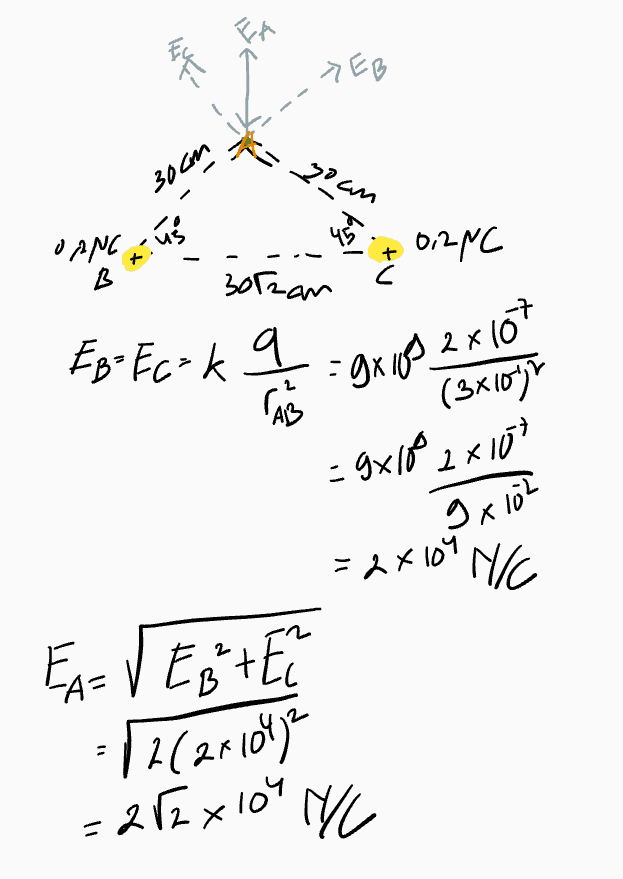 E_A
E_C
E_B
A
30 cm
30 cm
45°
45°
0,2 μC
B
+
+
0,2 μC
C
30√2 cm
E_B = E_C = k q / r_AB² = 9 × 10⁹ 2 × 10⁻⁷ / (3 × 10⁻¹)²
= 9 × 10⁹ 2 × 10⁻⁷ / 9 × 10⁻²
= 2 × 10⁴ N/C
E_A = √(E_B² + E_C²)
= √(2(2 × 10⁴)²)
= 2√2 × 10⁴ N/C